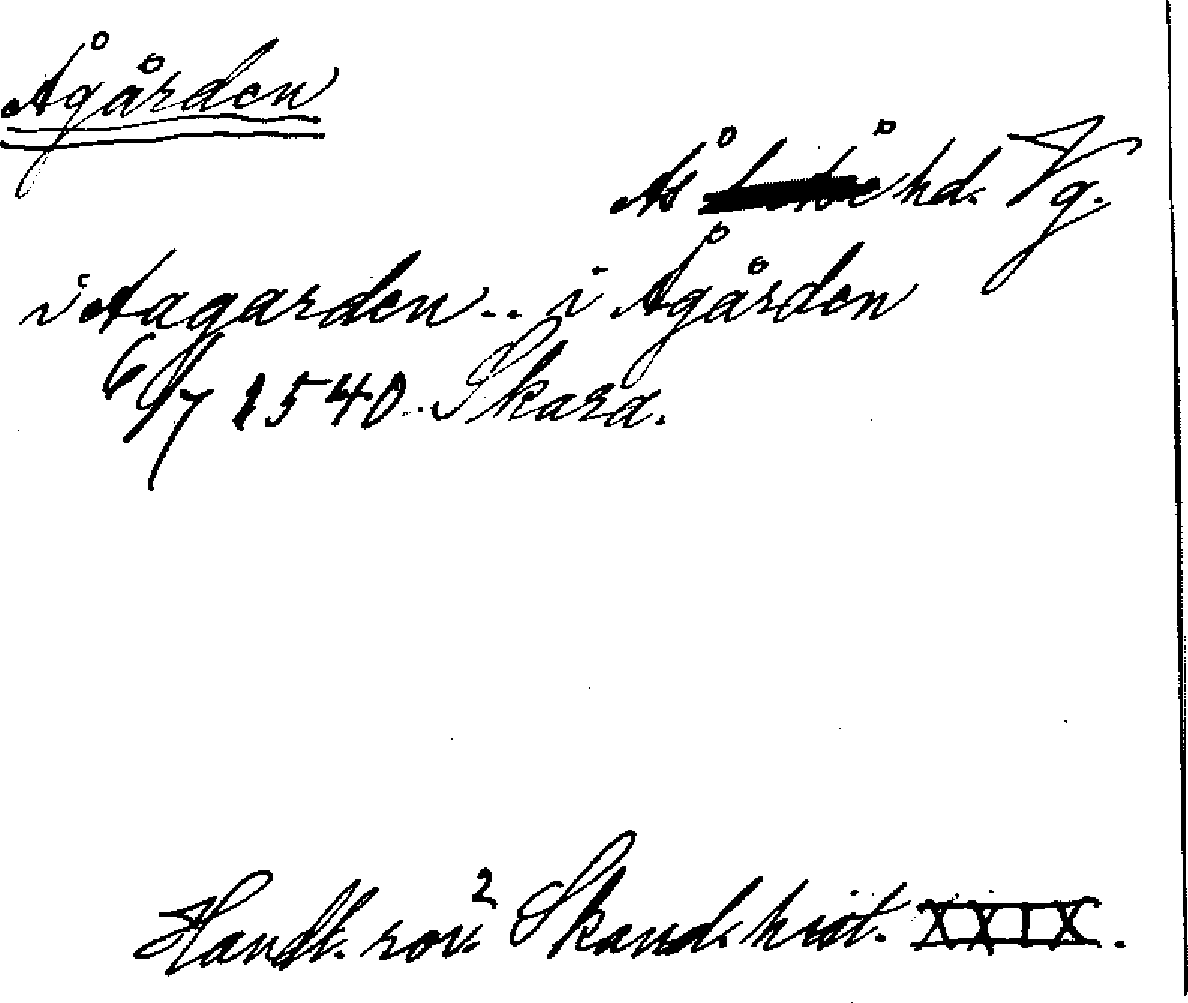 Ågården
Ås hd. Vg.
i Aagarden .. i Ågården
6/7 1540. Skara.
Handl. rör. Skand. hist. XXIX.